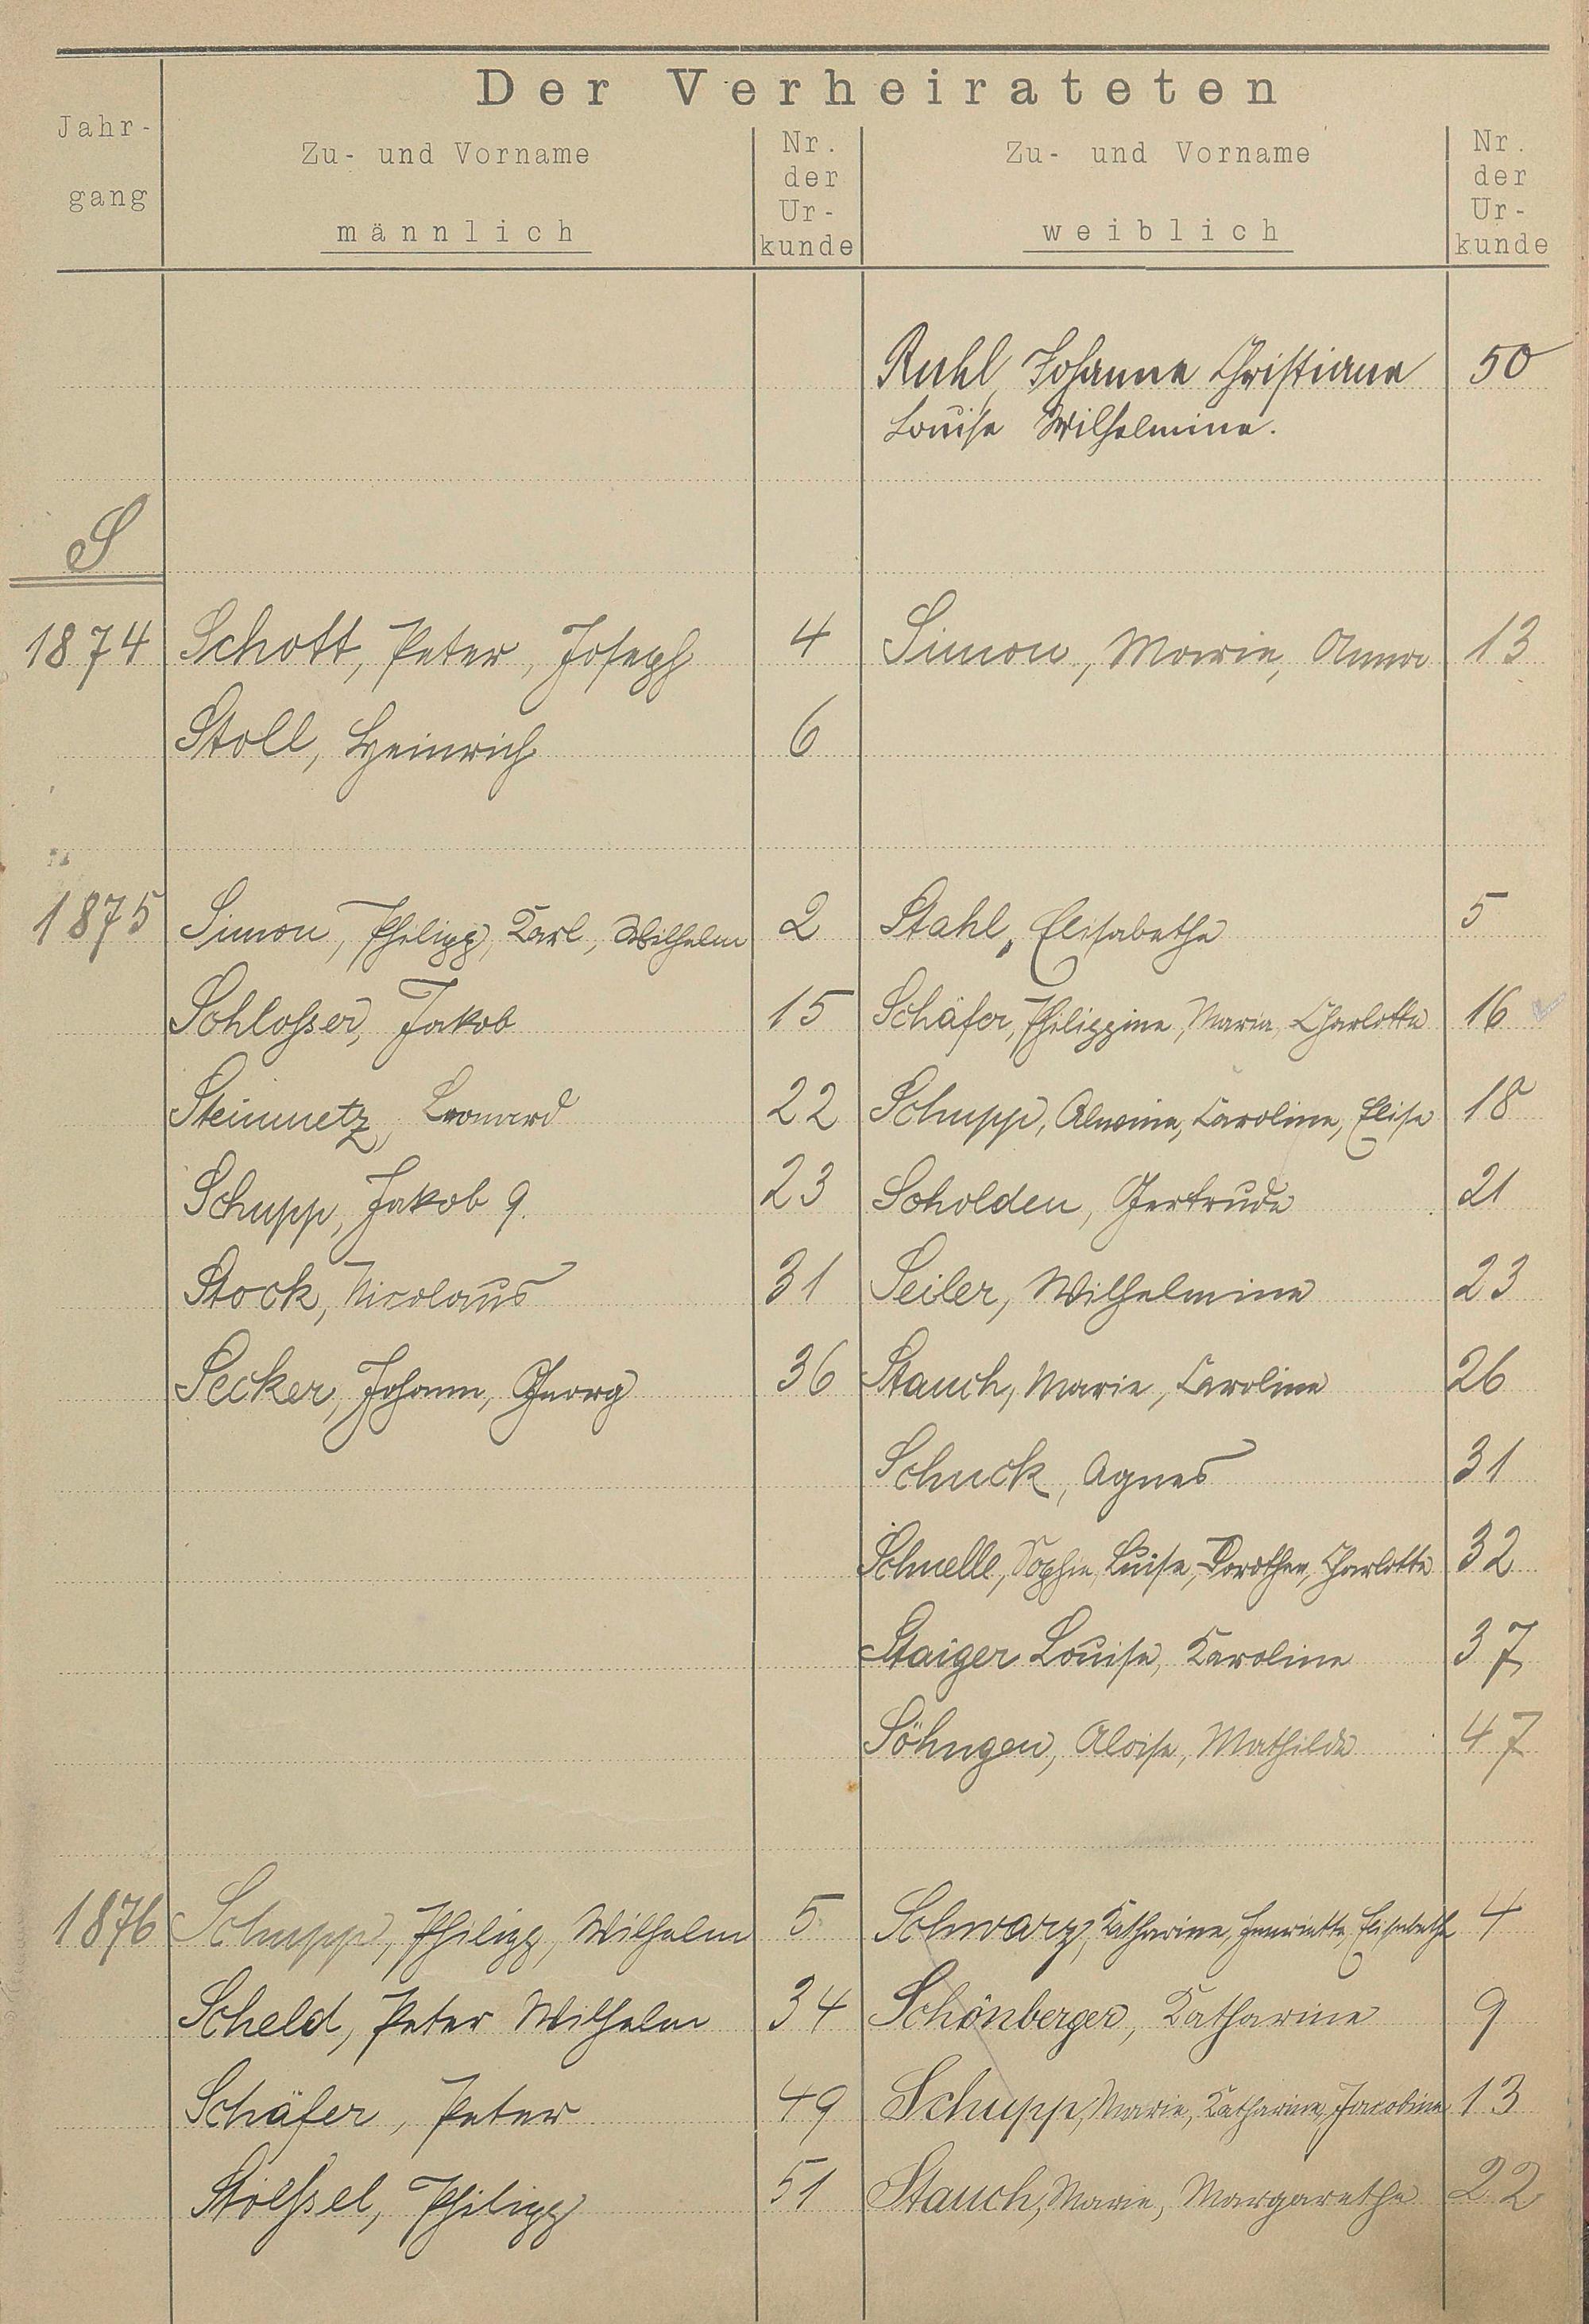 Der Verheirateten
Jahr-
gang
Zu- und Vorname
männlich
Nr.
der
Ur-
kunde
Zu- und Vorname
weiblich
Nr.
der
Ur-
kunde
Ruhl, Johanna Christiane 50
Louise Wilhelmine.
S
1874 Schott, Peter, Joseph 4 Simon, Marie, Anna 13
Stoll, Heinrich 6
1875 Simon, Philipp, Karl, Wilhelm 2 Stahl, Elisabethe 5
Schlosser, Jakob 15 Schäfer, Philippine, Maria, Charlotte 16
Steinmetz, Leonard 22 Schupp, Alwine, Caroline, Elise 18
Schupp, Jakob 9. 23 Scholden, Gertrude 21
Stock, Nicolaus 31 Seiler, Wilhelmine 23
Secker, Johann, Georg 36 Stauch, Marie, Caroline 26
Schuck, Agnes 31
Schnelle, Sophie, Luise, Dorothea, Charlotte 32
Staiger Louise, Karoline 37
Söhngen, Aloise, Mathilde 47
1876 Schupp, Philipp, Wilhelm 5 Schwarz, Katharine, Henriette, Elisabethe 4
Scheld, Peter Wilhelm 34 Schönberger, Katharine 9
Schäfer, Peter 49 Schupp, Marie, Katharine, Jacobine 13
Stoeßel, Philipp 51 Stauch, Marie, Margarethe 22